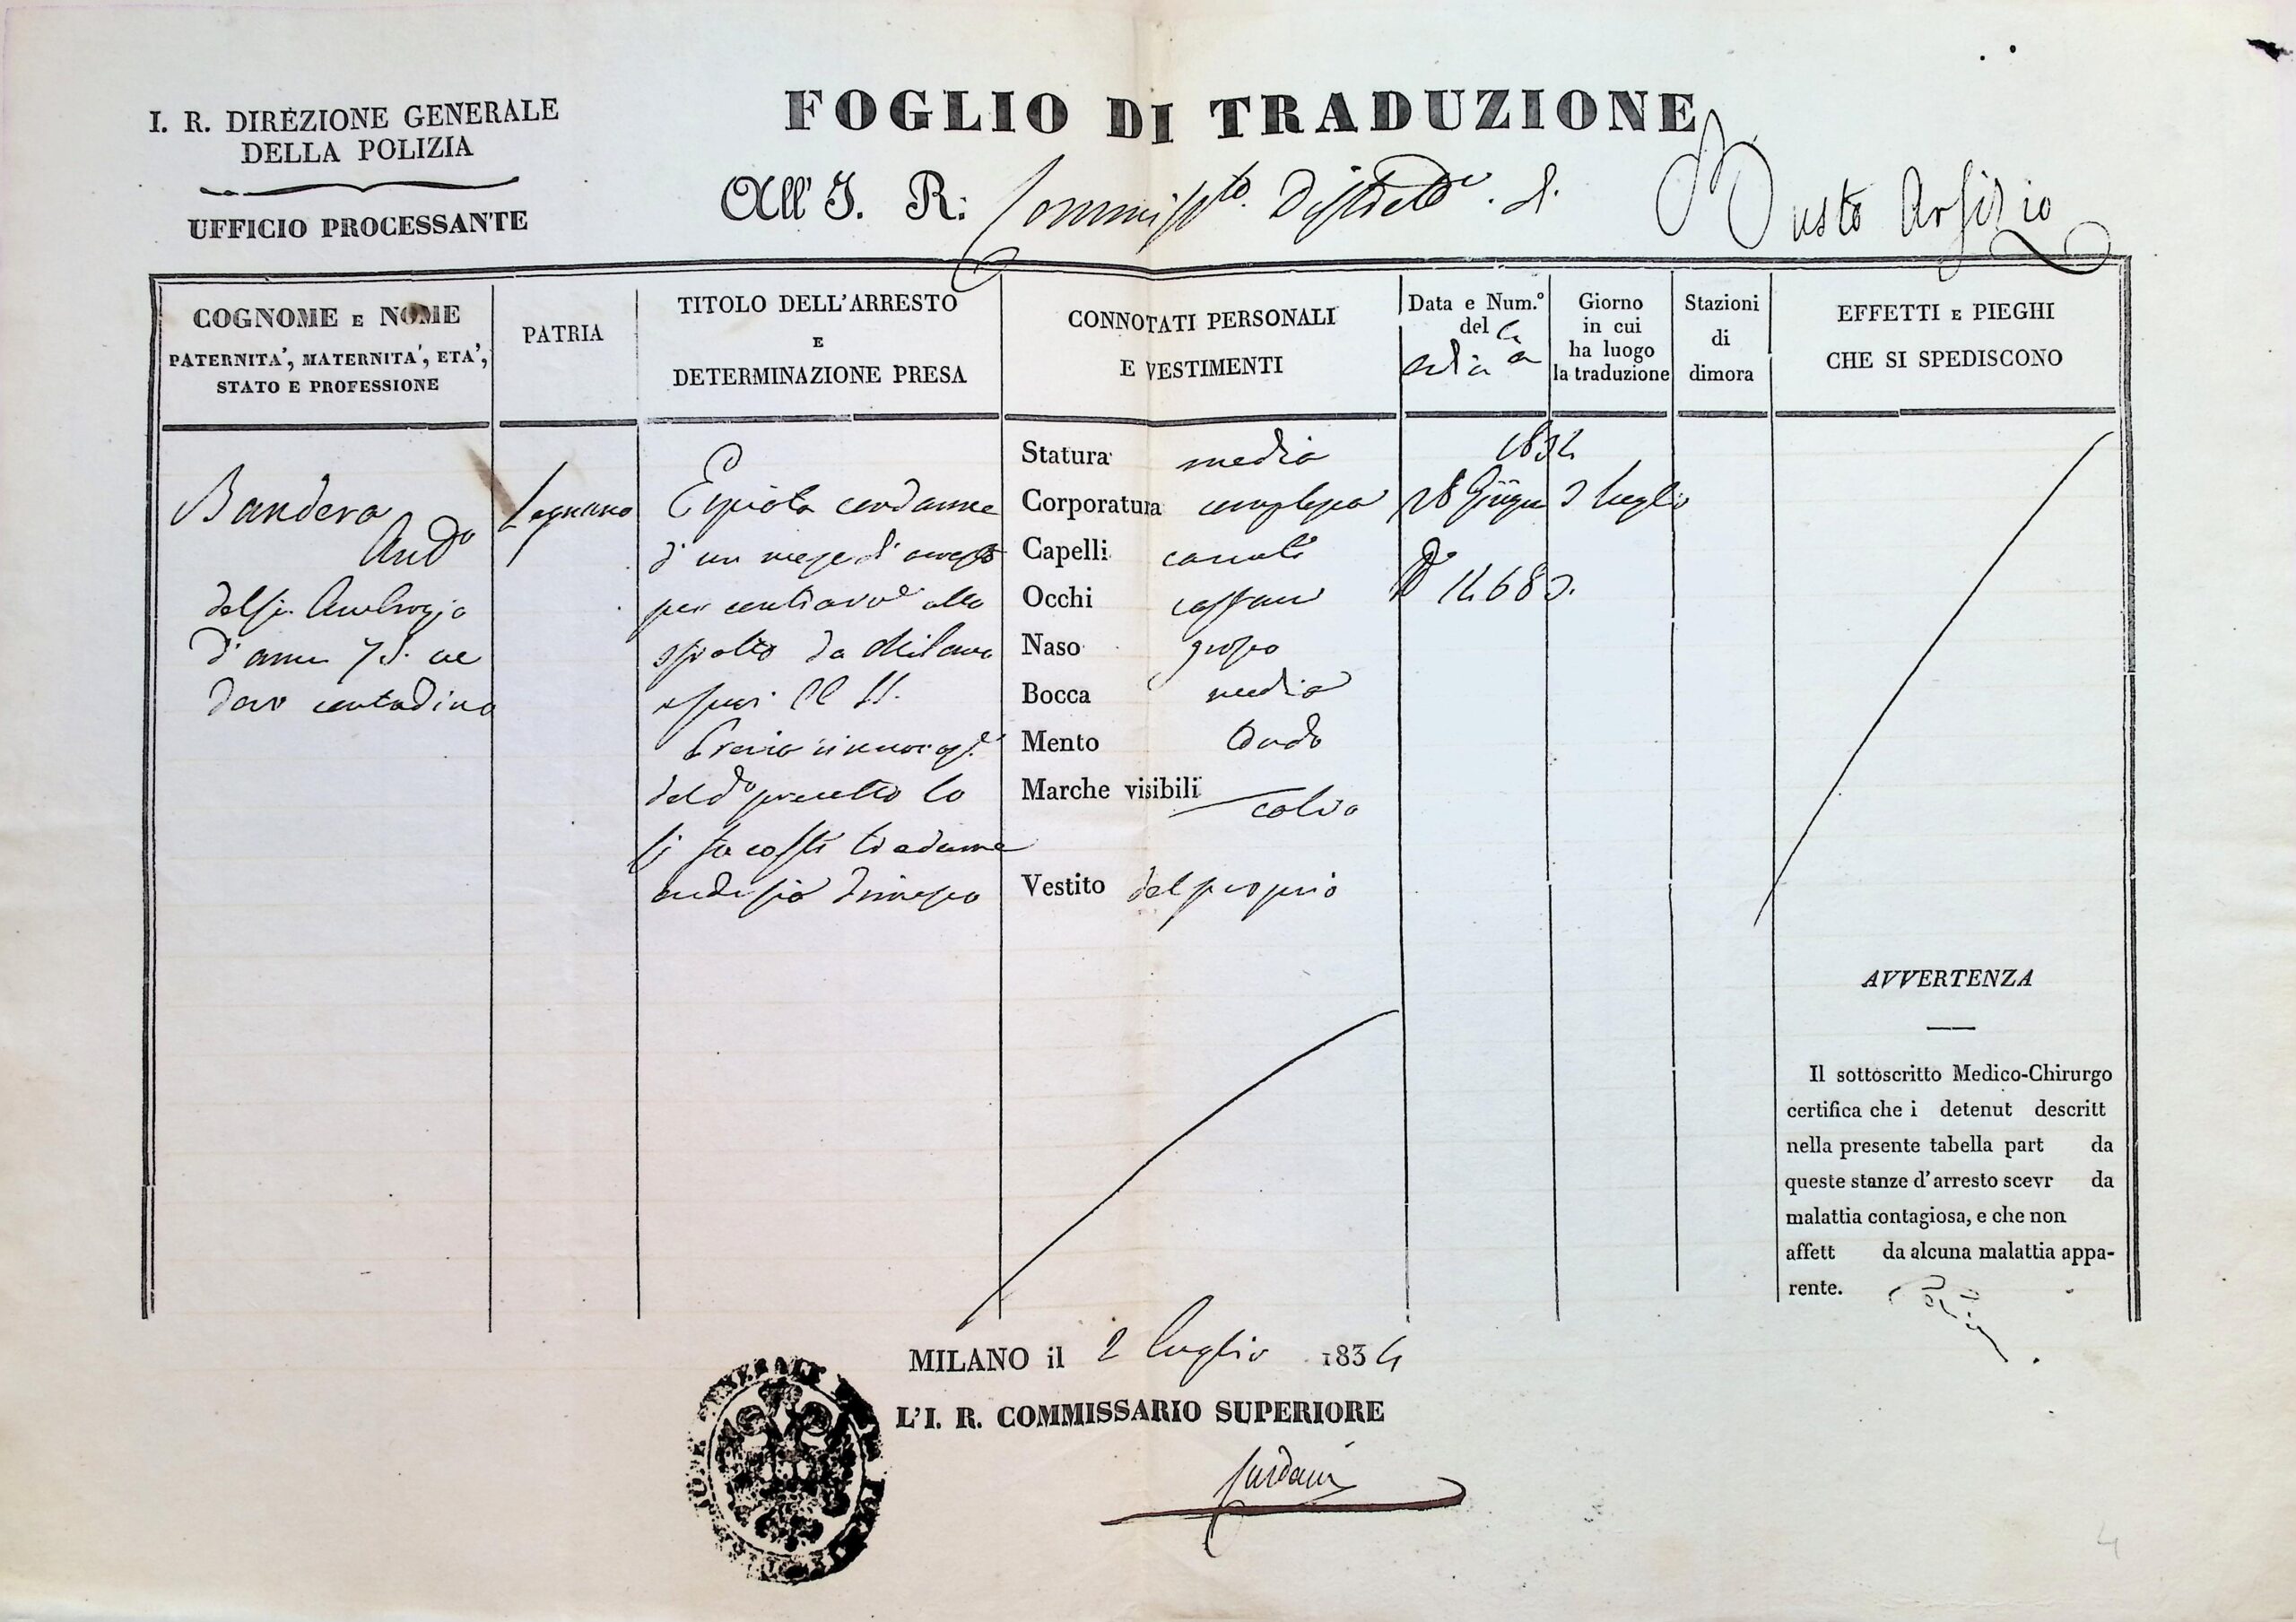 I. R. DIREZIONE GENERALE
DELLA POLIZIA
UFFICIO PROCESSANTE
FOGLIO DI TRADUZIONE
All' I. R. Commiss.to Distret.e di Busto Arsizio
COGNOME E NOME
PATERNITA', MATERNITA', ETA',
STATO E PROFESSIONE
Bandera
And.a
del fu Ambrogio
d'anni 75. ve
dovo contadino
PATRIA
Legnano
TITOLO DELL'ARRESTO
E
DETERMINAZIONE PRESA
Espiata condanna
d'un mese d'arresto
per contravv.e allo
sfratto da Milano
Previa
del d.o precetto lo
si fa costì tradurre
ond'essere dimesso
CONNOTATI PERSONALI
E VESTIMENTI
Statura media
Corporatura complessa
Capelli canuti
Occhi castani
Naso grosso
Bocca media
Mento tondo
Marche visibili calvo
Vestito del proprio
Data e Num.o
del
1834
28 Giugno
N. 12683.
Giorno
in cui
ha luogo
la traduzione
3 luglio
Stazioni
di
dimora
EFFETTI E PIEGHI
CHE SI SPEDISCONO
AVVERTENZA
Il sottoscritto Medico-Chirurgo
certifica che i detenut descritt
nella presente tabella part da
queste stanze d'arresto scevr da
malattia contagiosa, e che non
affett da alcuna malattia appa-
rente.
MILANO il 2 luglio 1834
L'I. R. COMMISSARIO SUPERIORE
4